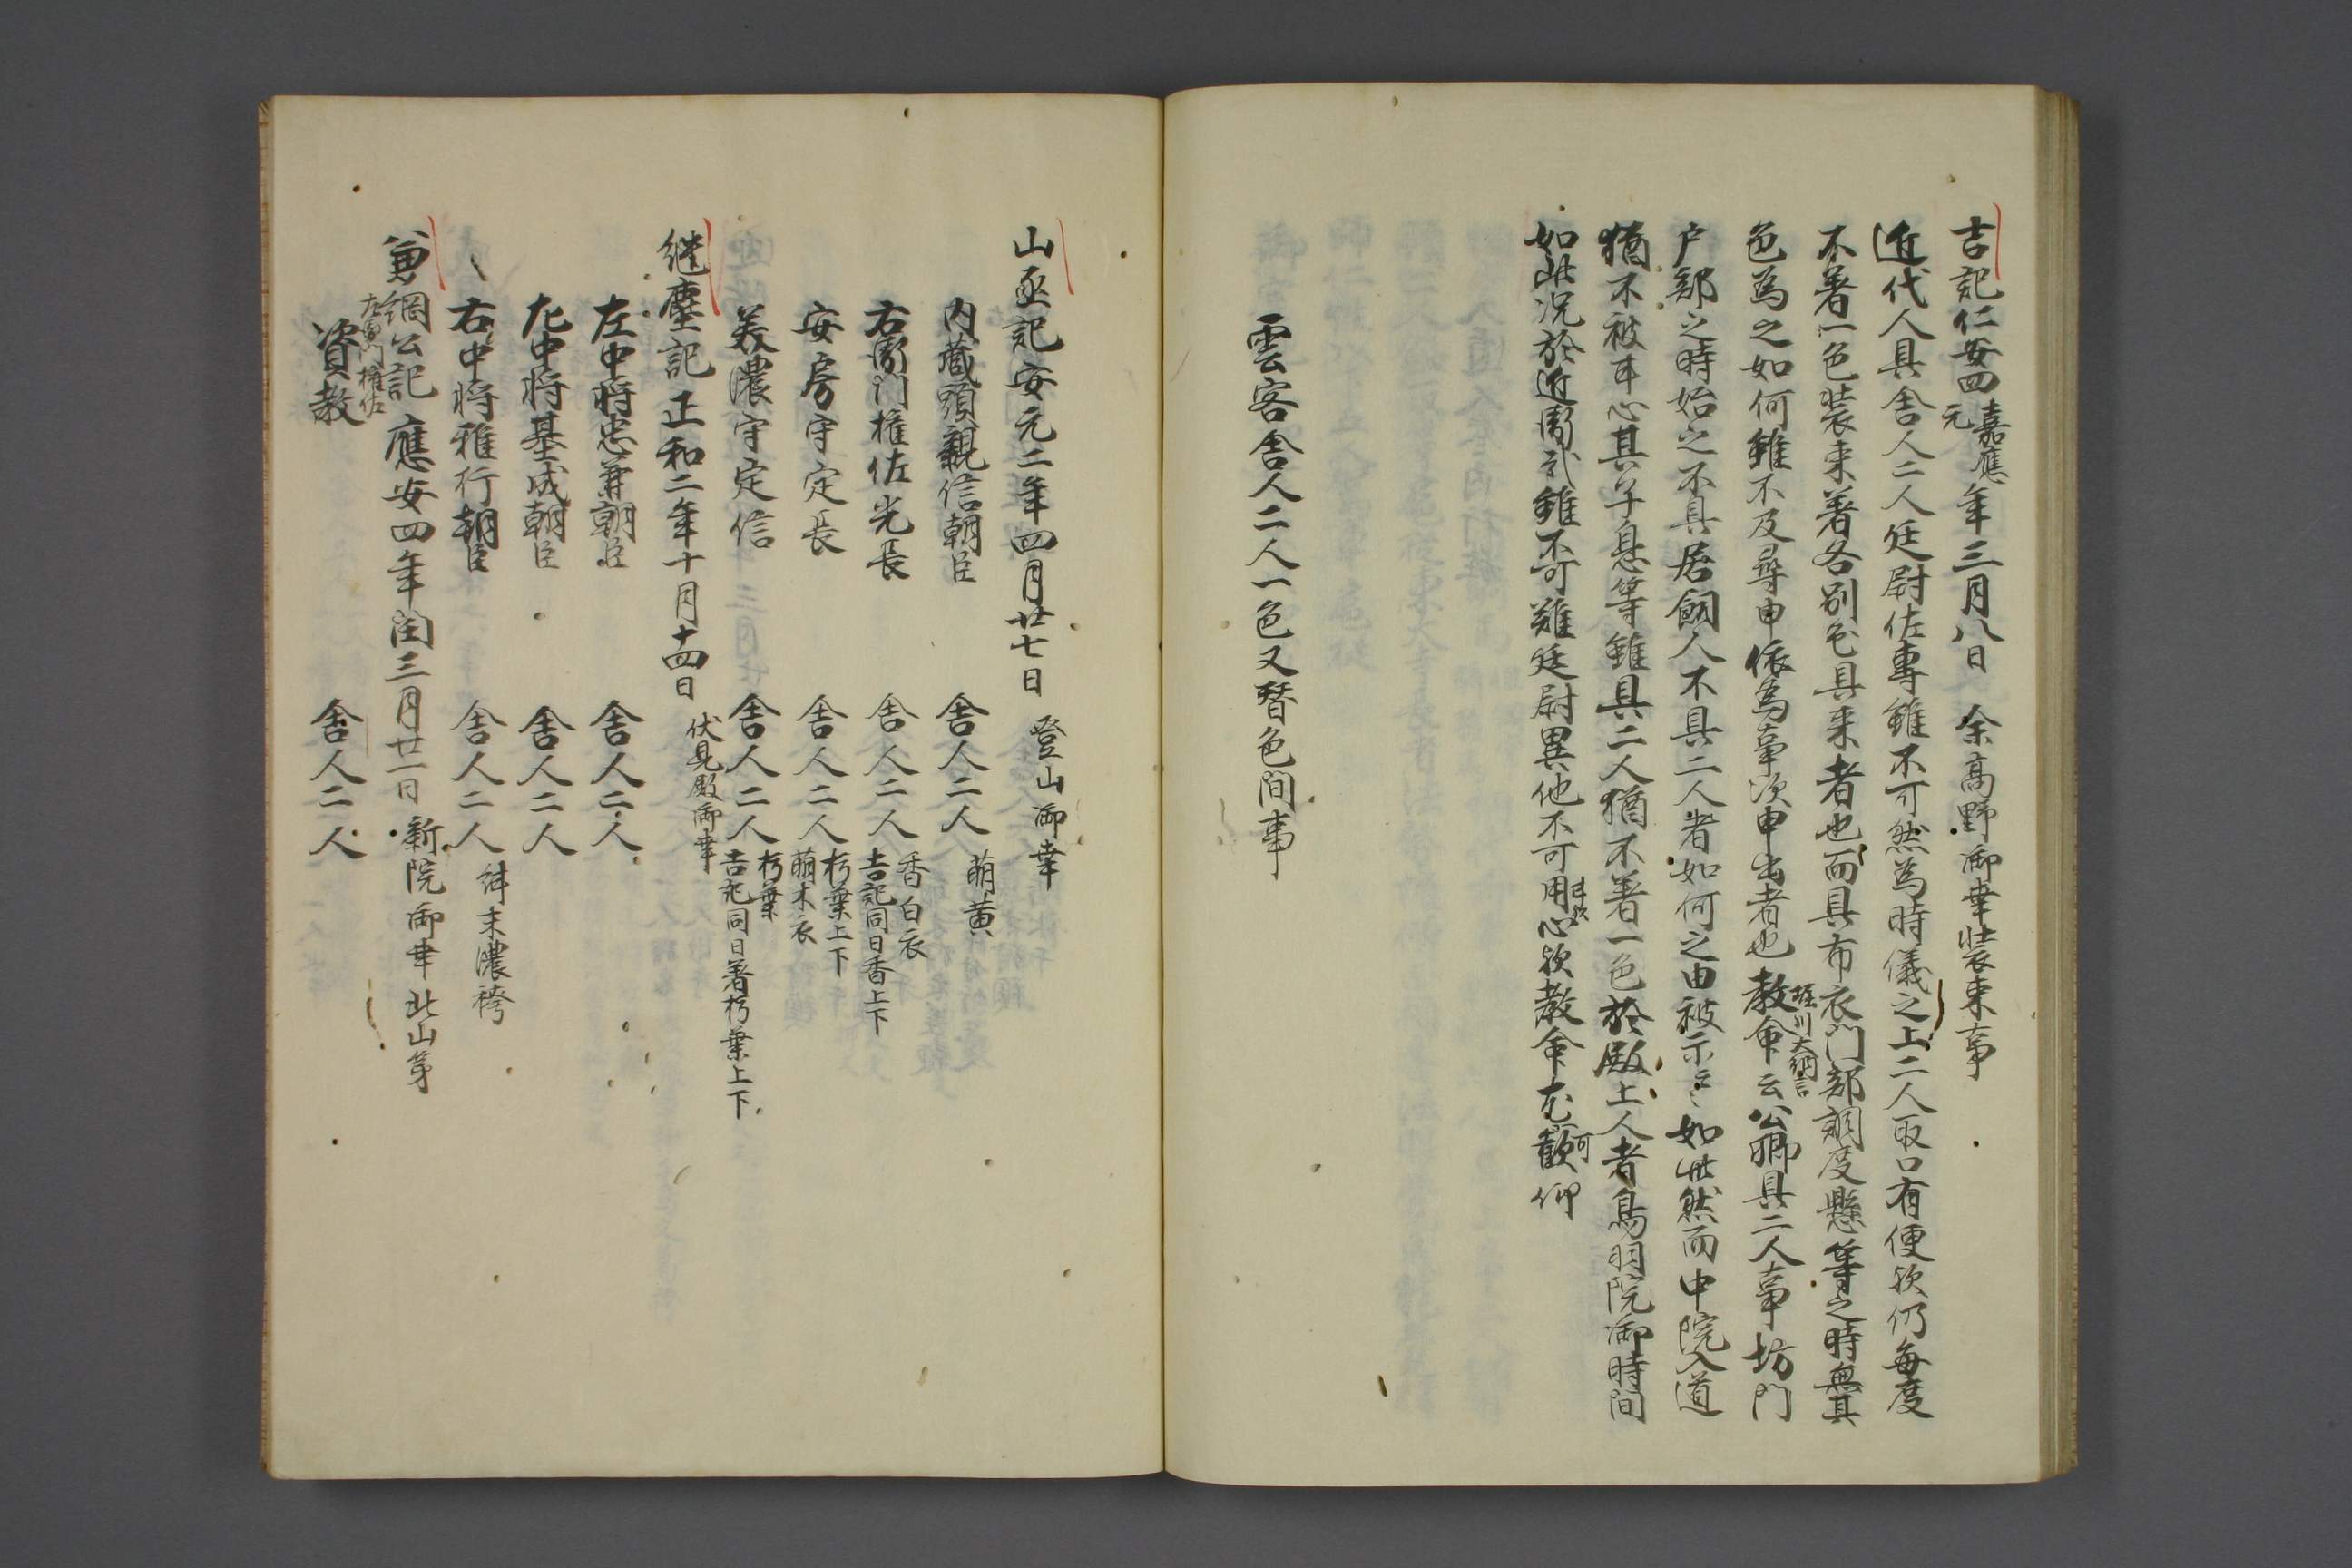 吉記仁安四嘉應元年三月八日 余高野御幸装束事
近代人具舍人二人廷尉佐專雖不可然為時儀之上二人取口有便欤仍毎度
不著一色装束著各別色具来者也而具布衣門部調度懸等之時無其
色為之如何雖不及尋申依為事次申出者也教命云堀川大納言公卿具二人事坊門
戸部之時始之不具居飼人不具二人者如何之由被示云々如此然而中院入道
猶不被甘心其子息等雖具二人猶不著一色於殿上人者鳥羽院御時間
如此况於近衛式雖不可難廷尉異他不可用心欤教命尤可歡仰
雲客舍人二人一色又替色間事
山丞記安元二年四月廿七日 登山御幸
内蔵頭親信朝臣 舍人二人 萌黄
右衛門権佐光長 舍人二人 香白衣 吉記同日香上下
安房守定長 舍人二人 朽葉上下 萌木衣
美濃守定信 舍人二人 朽葉 吉記同日著朽葉上下
継塵記正和二年十月十四日 伏見殿御幸
左中将忠兼朝臣 舍人二人
左中将基成朝臣 舍人二人
右中将雅行朝臣 舍人二人 末濃袴
兼綱公記應安四年閏三月廿一日 新院御幸北山第
左衛門権佐
資教 舍人二人